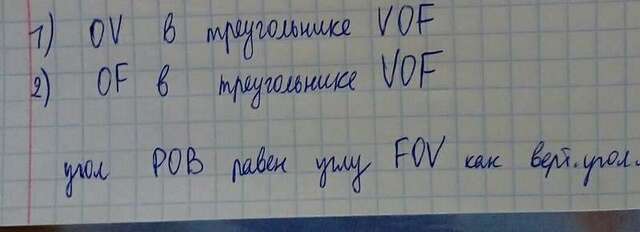 1) OV в треугольнике VOF
2) OF в треугольнике VOF
угол POB равен углу FOV как верт. угол.